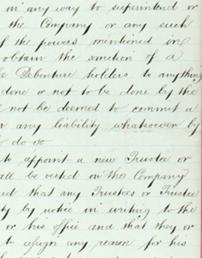 in any way to superintend or
the Company or any such
of the powers mentioned in
obtain the sanction of a
Debenture holders to anything
done or not to be done by the
not be deemed to commit a
any liability whatsoever by
to do so
to appoint a new Trustee or
all be vested in the Company
that any Trustees or Trustee
by notice in writing to the
or his office and that they or
to assign any reason for his